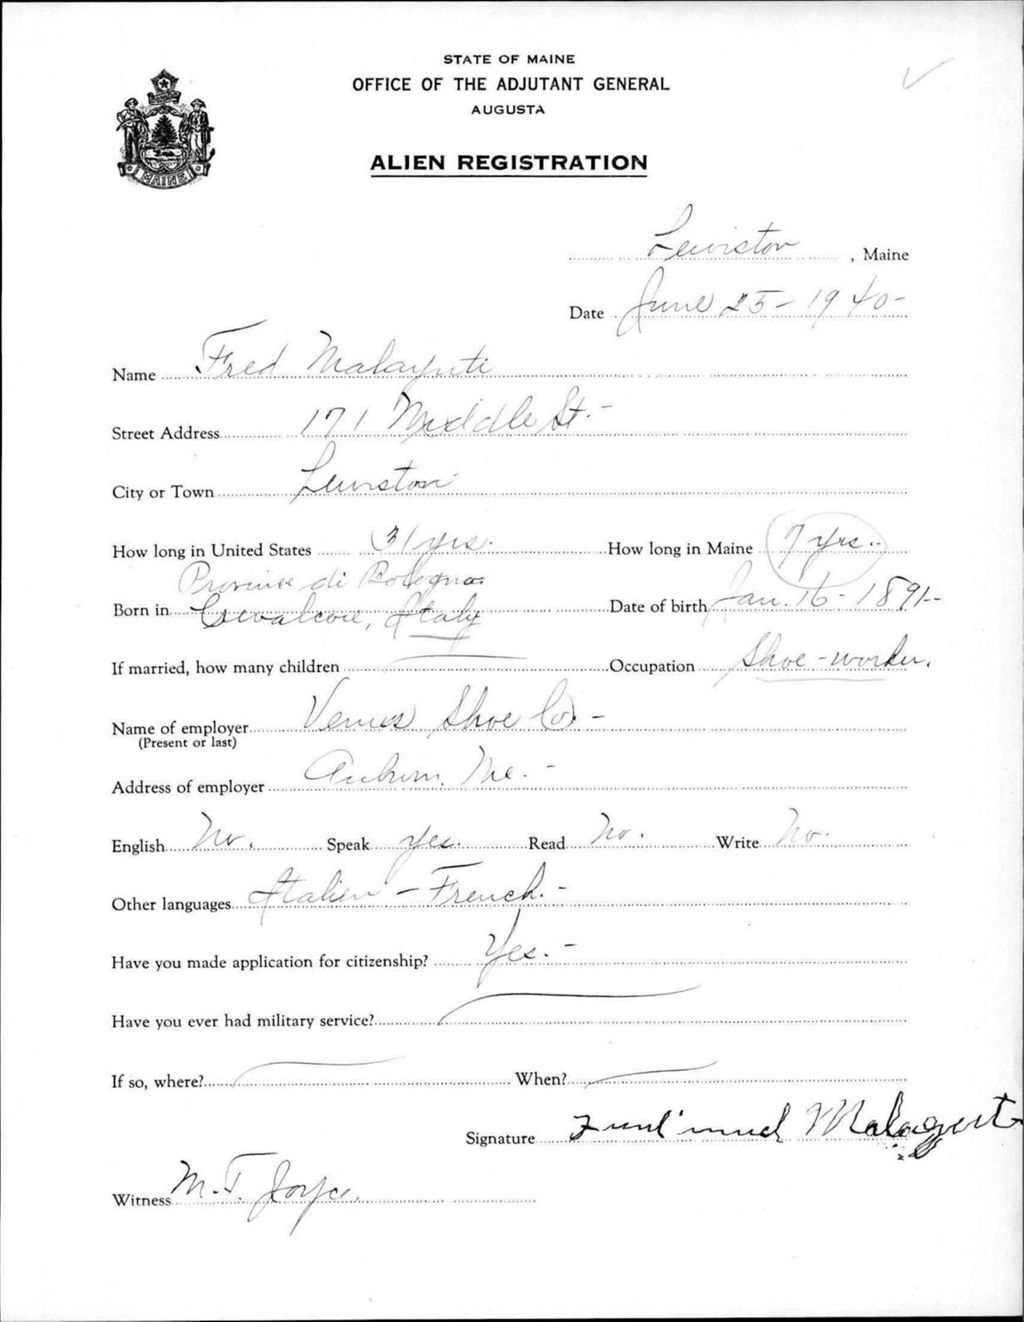 STATE OF MAINE
OFFICE OF THE ADJUTANT GENERAL
AUGUSTA
MAINE
ALIEN REGISTRATION
Lewiston, Maine
Date June 25 - 1940 -
Name Fred Malaguti
Street Address 171 Middle St. -
City or Town Lewiston
How long in United States 31 yrs. How long in Maine 7 yrs.
Province di Bologna
Born in Crevalcore, Italy Date of birth Jan. 16 - 1891 -
If married, how many children Occupation Shoe-worker.
Name of employer Venus Shoe Co. -
(Present or last)
Address of employer Auburn, Me. -
English No. Speak yes. Read No. Write No.
Other languages Italien - French. -
Have you made application for citizenship? Yes. -
Have you ever had military service?
If so, where? When?
Signature
Witness M. T. Joyce.